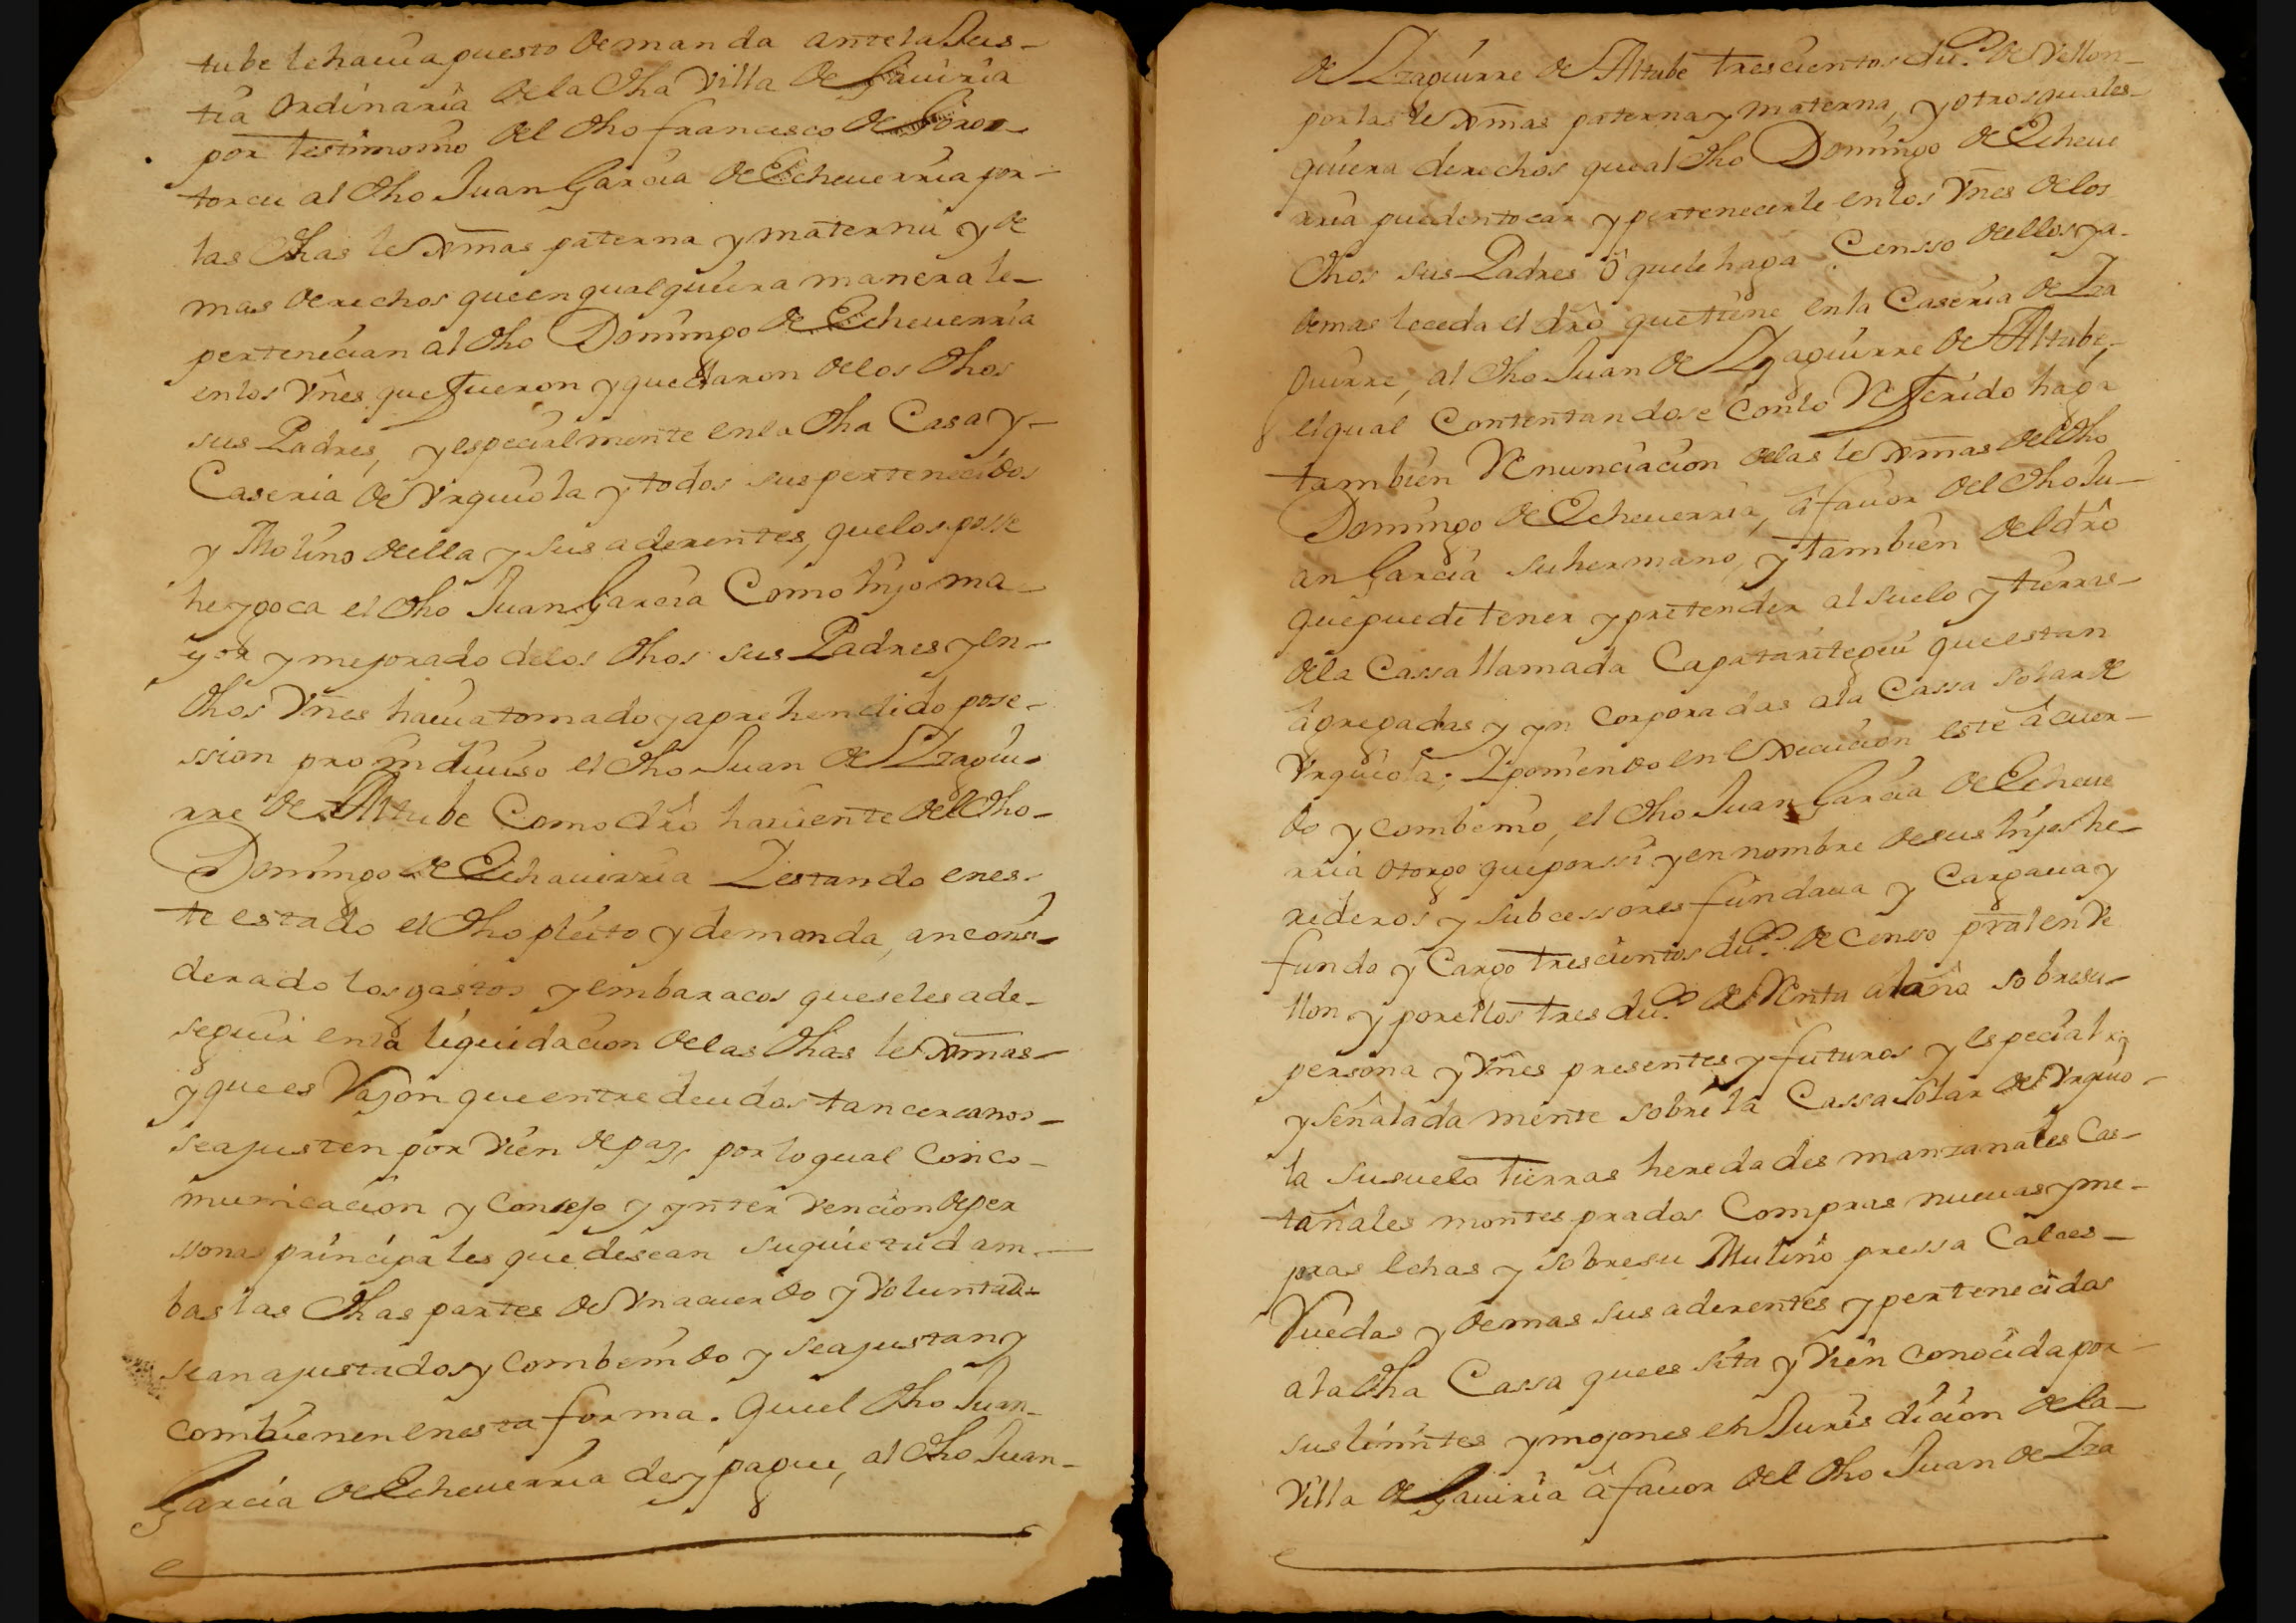 tube le hauia puesto demanda ante la Jus-
tiª ordinaria de la dha Villa de Gauiria
por testimonio del dho francisco de Goros-
torcu al dho Juan Garcia de Echeuerria por-
las dhas lexmas paterna y materna y de
mas derechos que en qualquiera manera le-
pertenecian al dho Domingo de Echeuerria
en los Vnes que fueron y quedaron de los dhos
sus Padres, y especialmente en la dha Casa y-
Caseria de Vrquiola y todos sus pertenecidos
y Molino della y sus aderentes, que los posse
he y goca el dho Juan Garcia Como hijo ma-
yor y mejorado de los dhos sus Padres y en-
dhos Vnes hauia tomado y aprehendido pose-
ssion pro yndiuiso el dho Juan de Yzagui-
rre de Altube Como dro hauiente del dho-
Domingo de Echauerria Y estando en es-
te estado el dho pleito y demanda, an consi-
derado los gastos y embaracos que se les a de-
seguir en la liquidacion de las dhas lexmas-
y que es Vajon que entre deudos tan cercanos-
se ajusten por Vien de paz, por lo qual Con co-
municacion y Consejo y ynter Vencion de per
ssonas principales que desean su quietud am-
bas las dhas partes de Vn acuerdo y Voluntad-
se an ajustado y combenido y se ajustan y
combienen en esta forma. Que el dho Juan-
Garcia de Echeuerria de y pague, al dho Juan-
de Yzaguirre de Altube trescientos duos de Vellon-
por las lexmas paterna y materna, y otros quales-
quiera derechos que al dho Domingo de Echeue
rria pueden tocar y pertenecerle en los Vnes de los
dhos sus Padres ô que le haga Censso dellos y a-
demas le ceda el dro que tiene en la Caseria de Yza
guirre, al dho Juan de Yzaguirre de Altube,
el qual Contentandose con lo Referido haga
tambien Renunciacion de las lexmas del dho
Domingo de Echeuerria, â fauor del dho Ju-
an Garcia su hermano, y tambien del dro
que puede tener y pretender al suelo y tierras-
de la Cassa llamada Capataritegui que estan
âgregadas y yn corporadas a la Cassa Solar de
Vrquiola; Y poniendo en execucion este âcuer-
do y combenio, el dho Juan Garcia de Echeue
rria otorgo que por ssi y en nombre de sus hijos he-
rederos y subcessores fundaua y Cargaua y
fundo y Cargo trescientos duos de Censo pral en Ve
llon y por ellos tres duos de Renta al año sobre su-
persona y Vnes presentes y futuros y especial
y señalada mente sobre la Cassa Solar de Vrquio-
la su suelo tierras heredades manzanales Cas-
tañales montes prados Compras nueuas y me-
joras echas y sobre su Mulino pressa Calces-
Ruedas y demas sus aderentes y pertenecidos
a la dha Cassa que es sita y Vien conocida por-
sus limites y mojones en Jurisdicion de la-
Villa de Gauiria â fauor del dho Juan de Yza